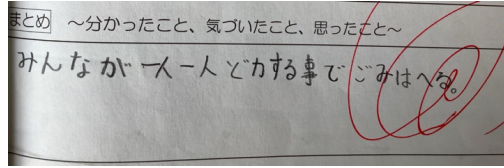 まとめ ～分かったこと、気づいたこと、思ったこと～
みんなが一人一人ど力する事でごみはへる。